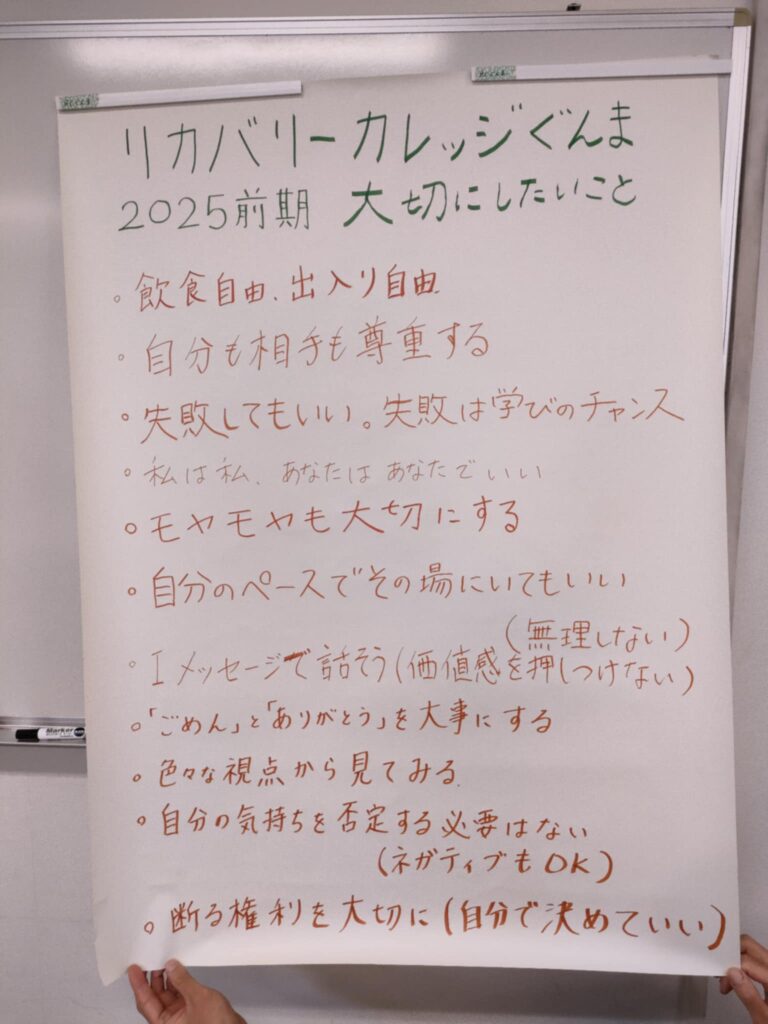 リカバリーカレッジぐんま
2025前期 大切にしたいこと
。飲食自由、出入り自由
。自分も相手も尊重する
。失敗してもいい。失敗は学びのチャンス
。私は私、あなたはあなたでいい
。モヤモヤも大切にする
。自分のペースでその場にいてもいい
(無理しない)
。Iメッセージで話そう(価値感を押しつけない)
。「ごめん」と「ありがとう」を大事にする
。色々な視点から見てみる
。自分の気持ちを否定する必要はない
(ネガティブもOK)
。断る権利を大切に(自分で決めていい)
Marker